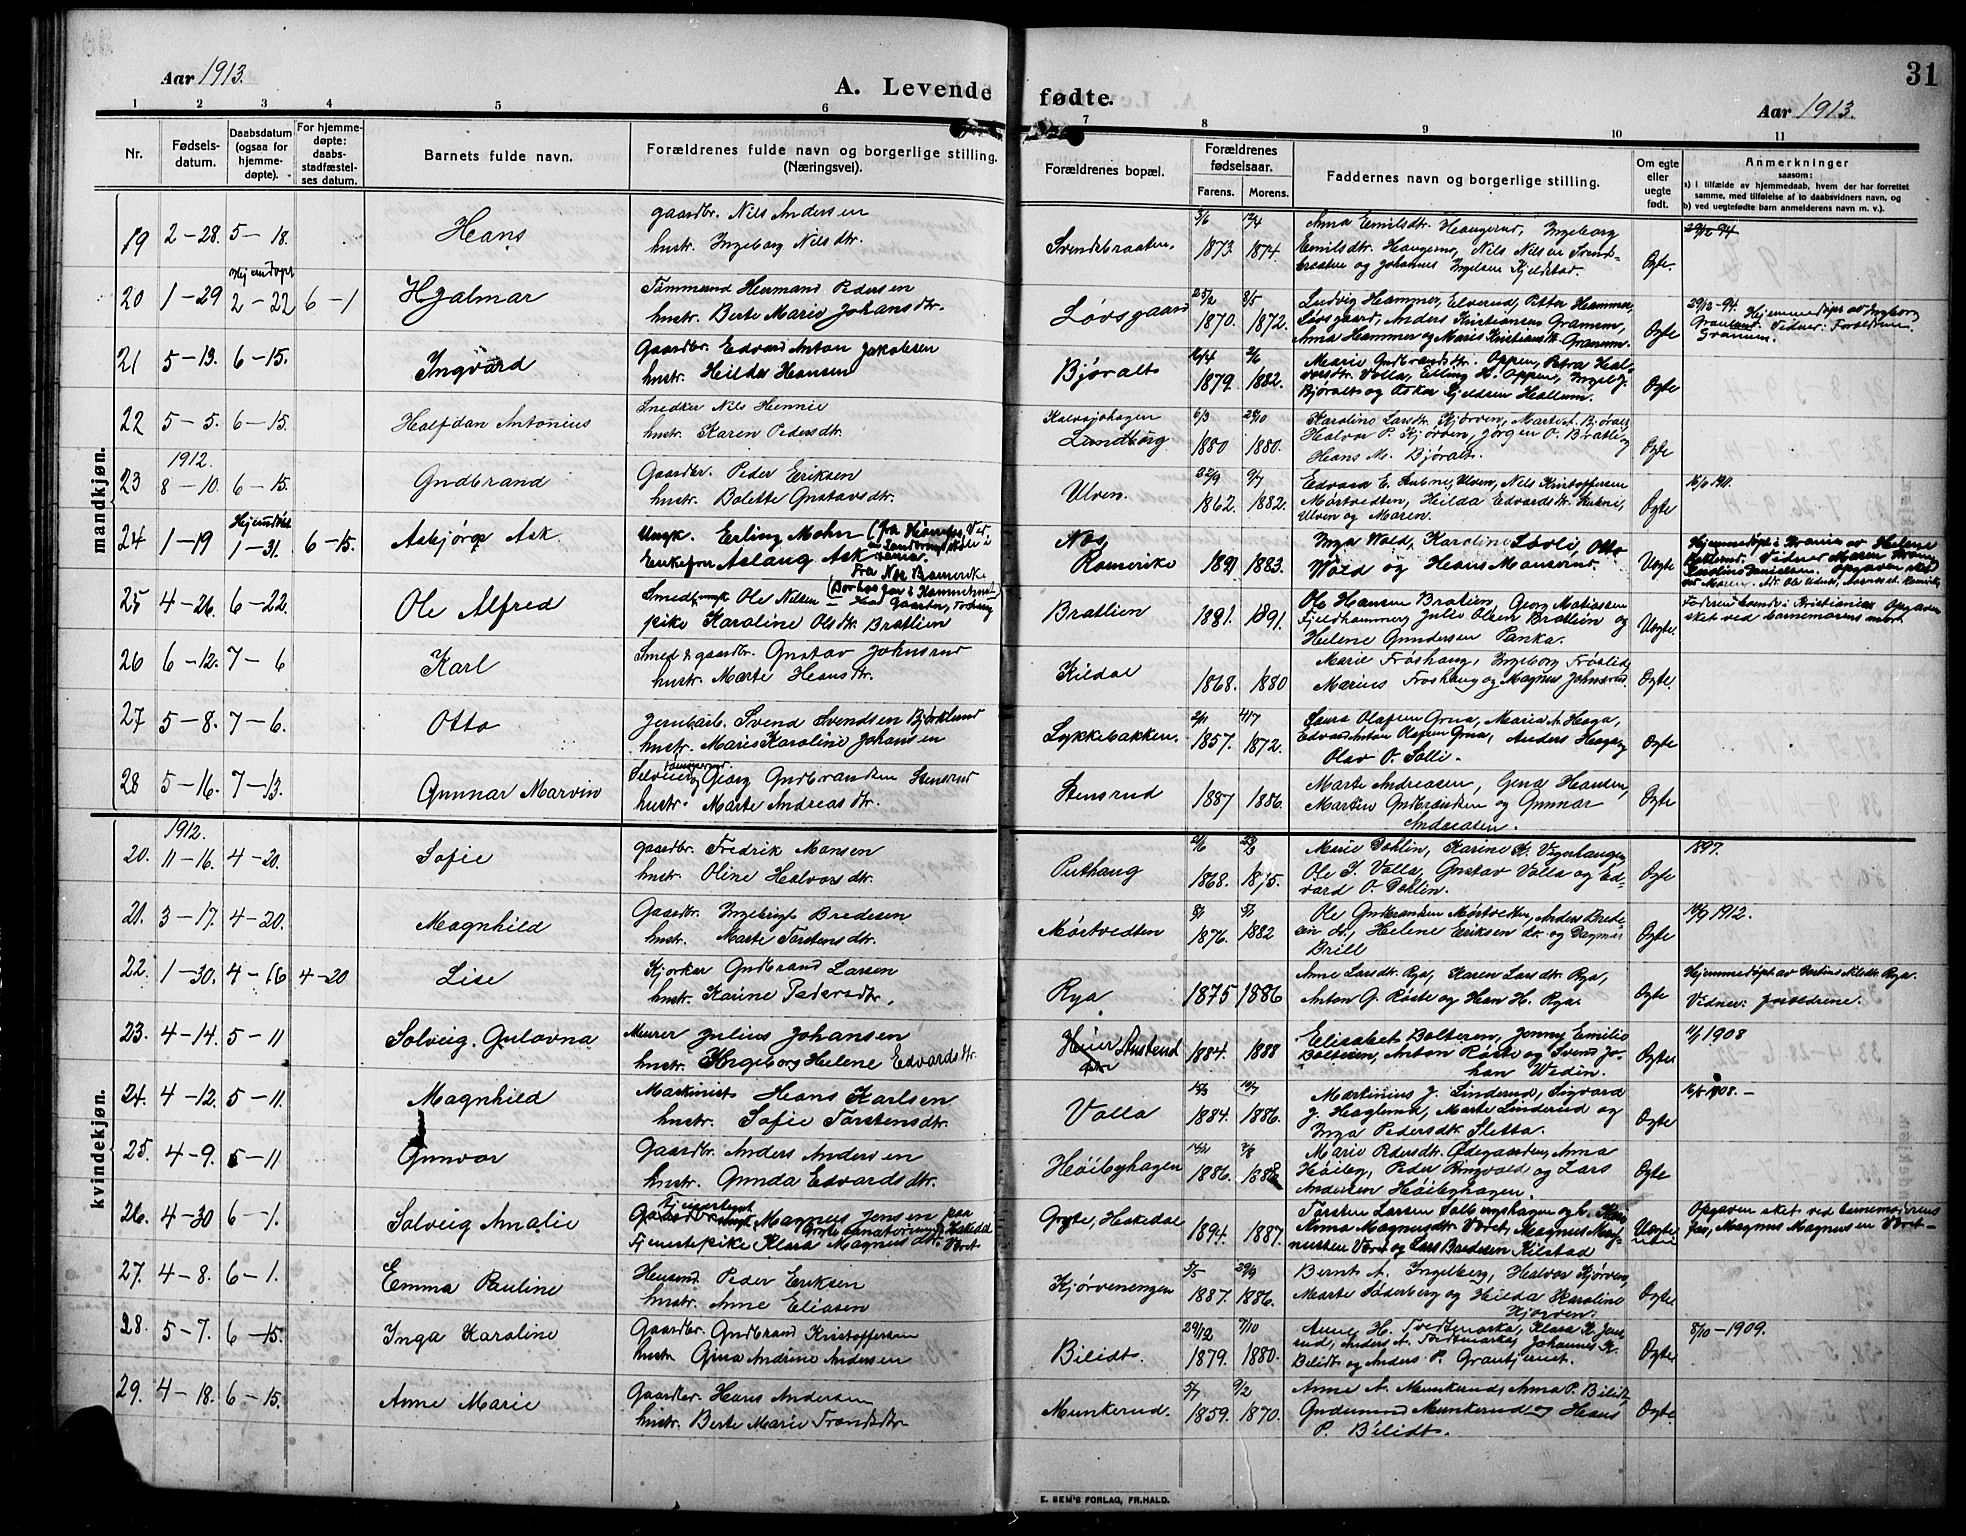 Aar 1913.
A. Levende fødte.
Aar 1913.
31
1 2 3 4 5 6 7 8 9 10 11
Nr.
Fødsels-
datum.
Daabsdatum
(ogsaa for
hjemme-
døpte).
For hjemme-
døpte:
daabs-
stadfæstel-
ses datum.
Barnets fulde navn.
Forældrenes fulde navn og borgerlige stilling.
(Næringsvei).
Forældrenes bopæl.
Forældrenes
fødselsaar.
Farens. Morens.
Faddernes navn og borgerlige stilling.
Om egte
eller
uegte
født.
Anmerkninger
saasom:
a) i tilfælde av hjemmedaab, hvem der har forrettet
samme, med tilføielse af to daabsvidners navn, og
b) ved uegtefødte barn anmelderens navn m. v.).
mandkjøn.
19 2-28. 5-18. Hans
gaardbr. Nils Andersen
hustr. Ingeborg Nilsdtr.
Svendsbraaten. 1873. 1874.
Anna Emilsdtr. Haugerud, Ingeborg
Emilsdtr. Haugerud, Nils Nilsen Svends-
braaten og Johannes Ingelsen Kjeldstad.
Egte.
20 1-29 Hjemdøpt 2-22 6-1 Hjalmar
Tømmerm Herman Pedersen
hustr. Berte Marie Johansdtr.
Løvsgaard 1870. 1872.
Ludvig Hammer, Elverud, Petter Hammer,
Løvsgaard, Anders Kristiansen Granum,
Anna Hammer og Marie Kristiansdtr. Granum.
Egte
29/12-94. Hjemmedøpt av Ingeborg
Granum. Vidner: Foreldrene.
21 5-13. 6-15. Ingvard
Gaardbr. Edvard Anton Jakobsen
hustr. Hilda Hansen
Bjøralt 1879. 1882.
Marie Gudbrandsdtr. Oppen, Petra Hal-
vorsdtr. Volla, Elling H. Oppen, Ingel J.
Bjøralt og Oskar Kjeldsen Hallum.
Egte
22 5-5. 6-15. Halfdan Antonius
Snedker Nils Hennie
hustr. Karen Pedersdtr.
Kalvsjøhagen
Lundborg 1880 1880.
Karoline Larsdtr. Kjørven, Marte A. Bjøralt
Halvor P. Kjørven, Jørgen O. Bratlie og
Hans M. Bjøralt.
Egte
23 1912. 8-10. 6-15. Gudbrand
Gaardbr. Peder Eriksen
hustr. Bolette Gustavsdtr.
Ulven. 1862. 1882.
Mørtvedten, Hilda Edvardsdtr.
Ulven og Maren.
Egte
24 1-19 Hjemdøbt 1-31. 6-15. Asbjørg Ask
Ungk. Erling Mohn
Enkefru Aslaug Ask
Fra Nes Romerike
Nes,
Romerike 1891 1883.
Inga Wold, Karoline Løvli, Otto
Wold og Hans Monserud.
Uegte
25 4-26. 6-22. Ole Alfred
Smed ungk Ole Nilsen
pike Karoline Olsdtr. Bratlien
Bratlien 1881. 1891.
Ole Hansen Bratlien, Georg Matiassen
Fjeldhammer, Julie Olsen Bratlien og
Helene Gundersen Panka.
Uegte.
Faderen boende i Kristiania. Opgaven
sket ved barnemoren.
26 6-12. 7-6 Karl
Smed & gaardbr. Gustav Johnsrud
hustr. Marte Hansdtr.
Kildal 1868. 1880
Marie Frøshaug, Ingeborg Frøslid,
Marius Frøshaug og Magnus Johnsrud.
Egte.
27 5-8. 7-6. Otto
Jernbarb. Svend Svendsen Bjørklund
hustr. Marie Karoline Johansen
Lykkebakken. 1857. 1872.
Laura Olafsen Grua, Maria A. Haga,
Edvard Anton Olafsen Grua, Anders Haga og
Olav O. Solli.
Egte
28 5-16. 7-13. Gunnar Marvin
Selveier og Georg Gudbrandsen Stensrud
hustr. Marte Andreasdtr.
Stensrud 1887 1886.
Marte Andreasen, Gena Hansen,
Martin Gudbrandsen og Gunnar
Andreasen.
Egte
kvindekjøn.
20. 1912. 11-16. 4-20. Sofie
gaardbr. Fredrik Monsen
hustr. Oline Halvorsdtr.
Puthaug 1868. 1875.
Marie Dohlin, Karine K. Vegerhaugen,
Ole S. Volla, Gustav Volla og Ed-
vard O. Dohlin.
Egte
1897.
21. 3-17. 4-20. Magnhild
Gaardbr. Ingebrigt Bredesen
hustr. Marte Torstensdtr.
Mørtvedten 1876. 1882
Ole Gudbrandsen Mørtvedten, Anders Brede-
sen do., Helene Eriksen do. og Dagmar
Brill
Egte
1912.
22. 1-30. 4-16 4-20 Lise
Kjørkar Gudbrand Larsen
hustr. Karine Pedersdtr.
Rya 1875 1886
Anne Larsdtr. Rya, Karen Larsdtr. Rya,
Anton G. Røste og Hans H. Rya.
Egte
Hjemmedøpt av Bertine Nilsdtr. Rya.
Vidner: foreldrene.
23. 4-14. 5-11 Solveig Gulovna
Murer Julius Johansen
hustr. Ingeborg Helene Edvardsdtr.
1884. 1888
Elisabet Bolteren, Jenny Emilie
Bolteren, Anton Røste og Svend Jo-
han Wedin.
Egte
11/1 1908
24. 4-12. 5-11. Magnhild
Maskinist Hans Karlsen
hustr. Sofie Torstensdtr.
Volla 1884. 1886.
Martinius J. Linderud, Sigvard
J. Haglund, Marte Linderud og
Inga Pedersdtr. Sletta.
Egte
1908.-
25. 4-9. 5-11 Gunvor
Gaardbr. Anders Andersen
hustr. Gunda Edvardsdtr.
Høibyhagen 1886. 1888
Marie Pedersdtr. Ødegaarden, Anna
Høiby, Peder Ringvold og Lars
Andersen Høibyhagen.
Egte
26. 4-30 6-1. Solveig Amalie
Magnus Jensen paa
Tjenestepike Klara Magnusdtr. Vøret
Gryte, Hakedal 1894. 1887.
Torsten Larsen
Anna Magnusdtr. Vøret, Magnus Mag-
nussen Vøret og Lars Bredesen Kilstad
Uegte
Opgaven sket ved barnemorens
far, Magnus Magnussen Vøret-
27. 4-8. 6-1. Emma Pauline
Husmd. Peder Eriksen
hustr. Anne Eliasen
Kjørvenengen 1887. 1886.
Bernt A. Ingelberg, Halvor Kjørven,
Marte Søderberg og Hilda Karoline
Kjørven.
Egte.
28. 5-7. 6-15. Inga Karoline
Gaardbr. Gudbrand Kristoffersen
hustr. Gina Andrine Andersen
Bilidt. 1879. 1880.
Anne H. Tvedtmarka, Klara K. Jons-
rud, Anders A. Tvedtmarka, Johannes K.
Bilidt og Anders P. Grantjernet.
Egte
8/10-1909.
29. 4-18. 6-15. Anne Marie
Gaardbr. Hans Andersen
hustr. Berte Marie Trondsdtr.
Munkerud. 1859. 1870.
Anne A. Munkerud, Anna P. Bilidt,
Gudmund Munkerud og Hans
P. Bilidt.
Egte.
E. SEM'S FORLAG, FR.HALD.